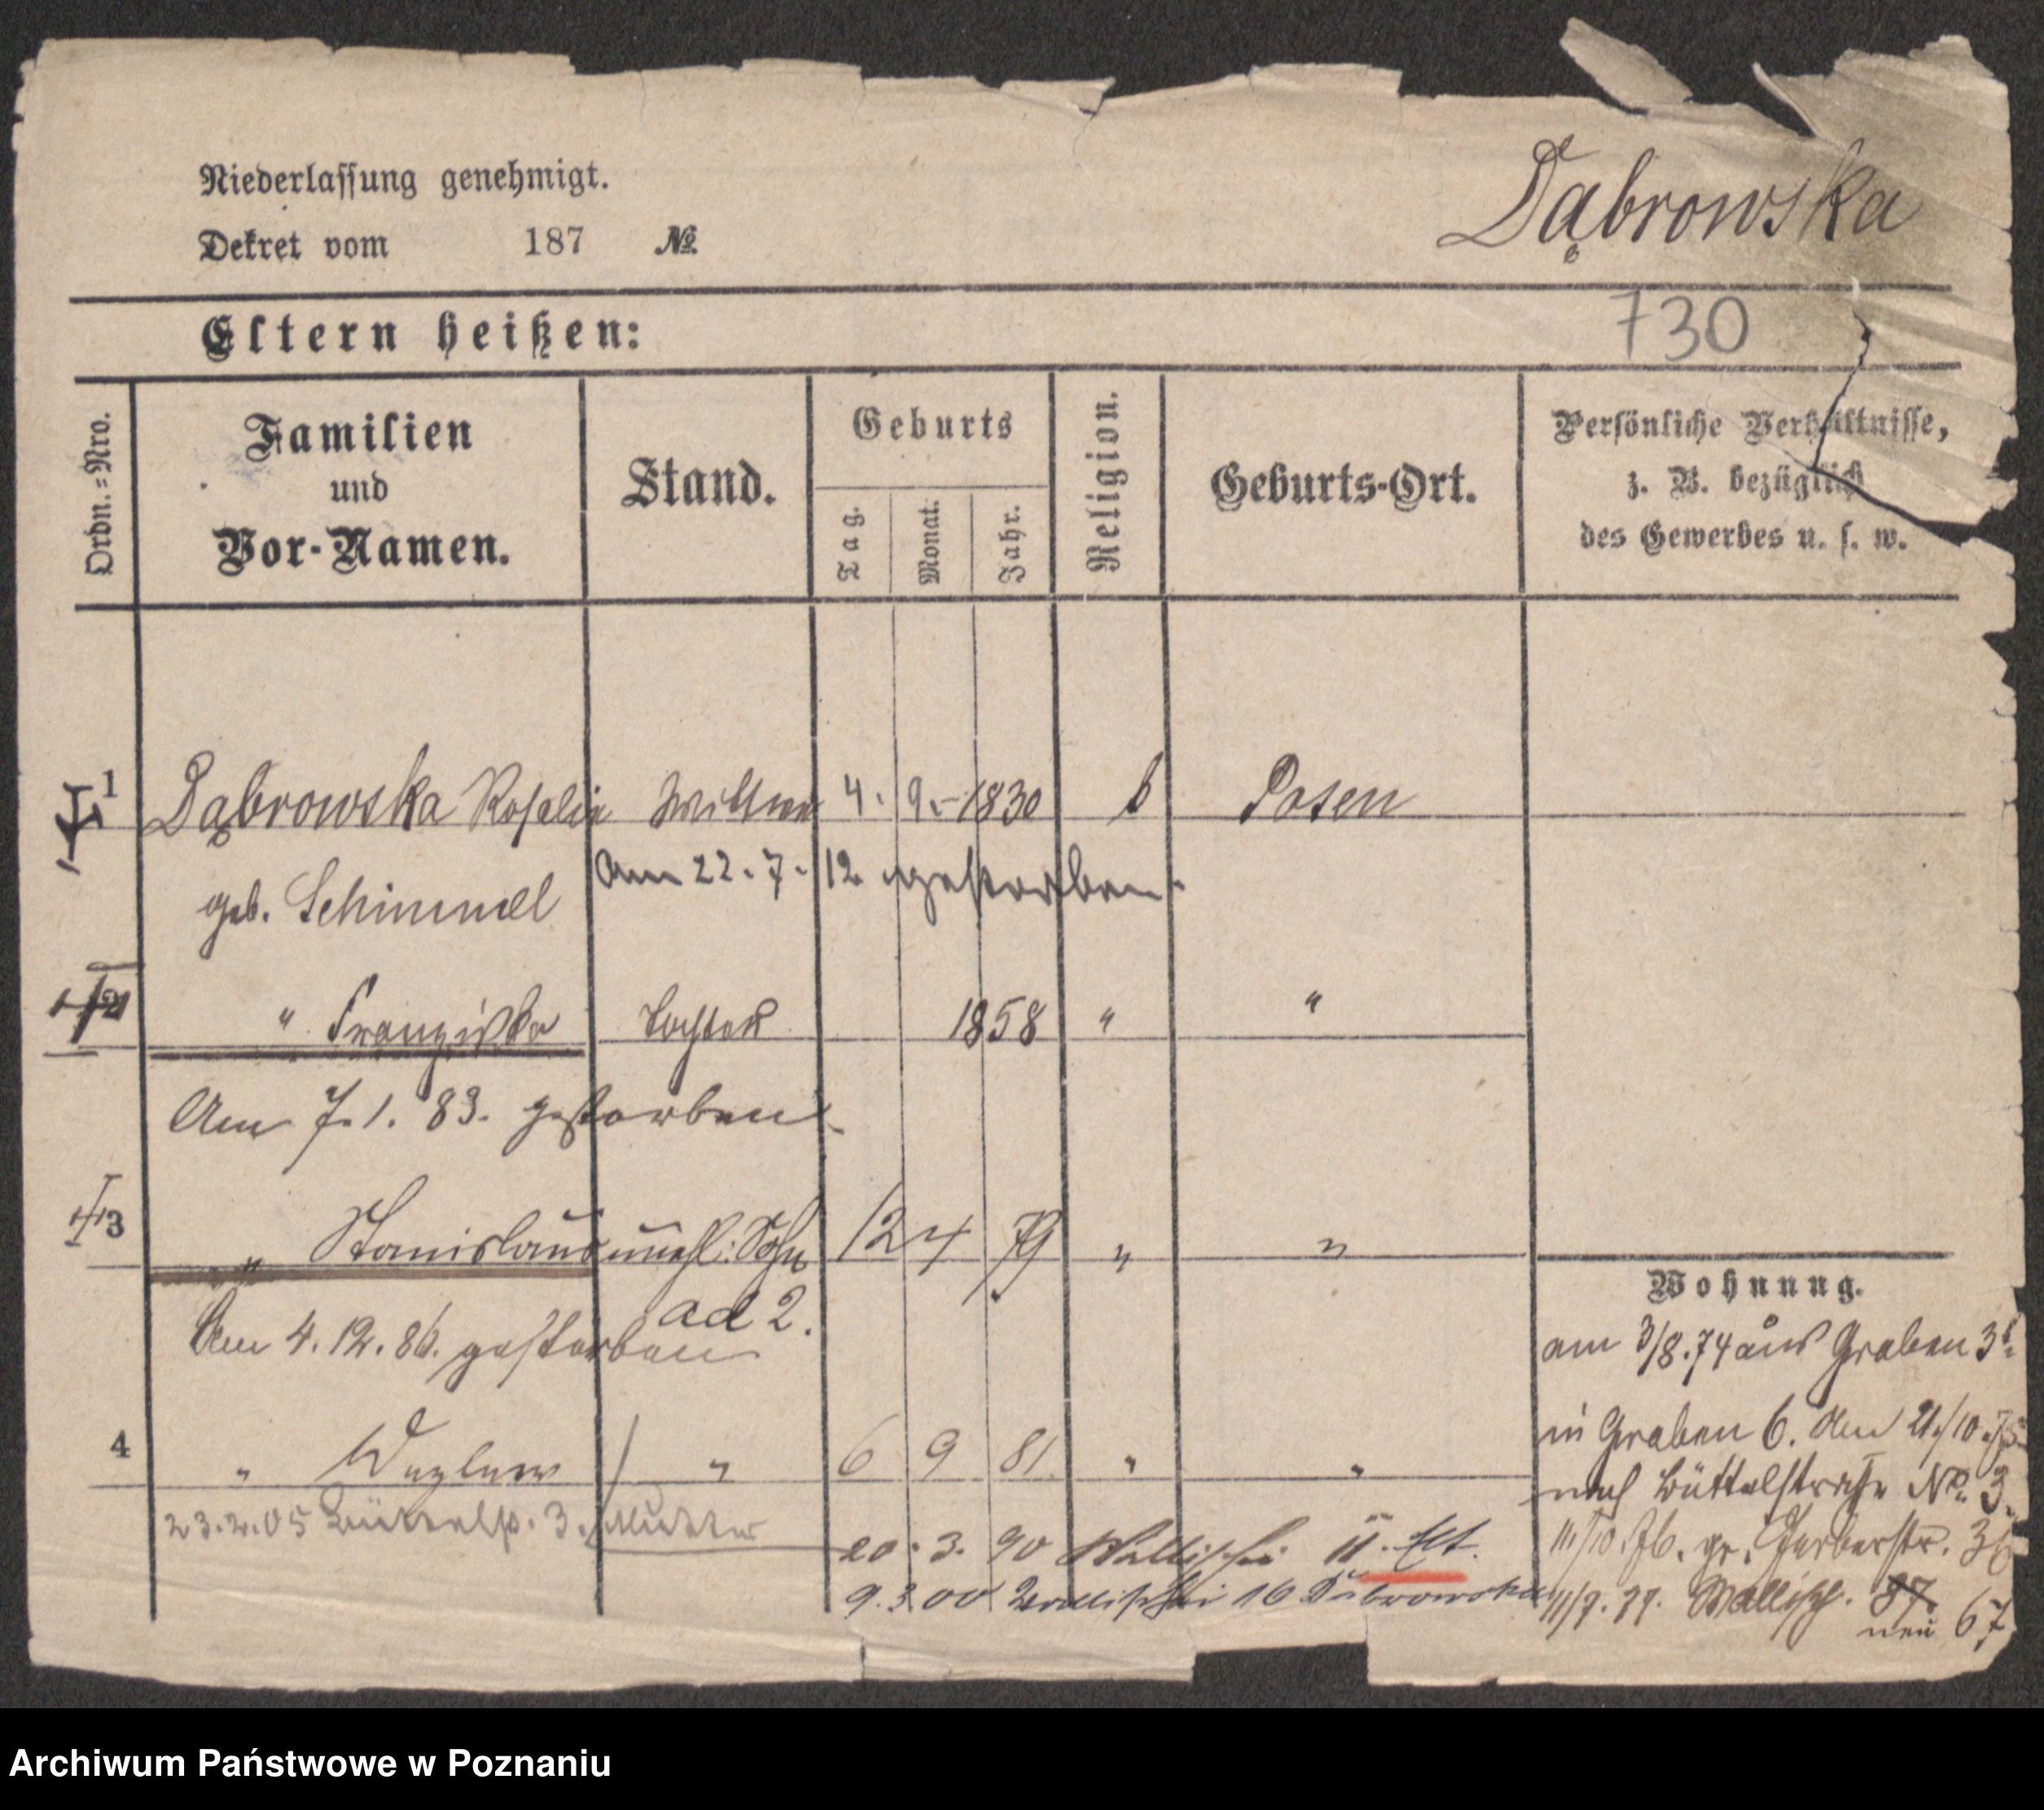 Niederlassung genehmigt.
Dekret vom 187 №
Dąbrowska
730
Eltern heißen:
Ordn.=Nro.
Familien
und
Vor-Namen.
Stand.
Geburts
Tag.
Monat.
Jahr.
Religion.
Geburts-Ort.
Persönliche Verhältnisse,
z. B. bezüglich
des Gewerbes u. s. w.
1 Dąbrowska Rosalie Wittwe 4. 9. 1830 k Posen
am 22. 7. 12 gestorben.
geb. Schimmel
2 " Franziska Tochter 1858 " "
Am 7. 1. 83. gestorben.
3 " Stanislaus unehl. Sohn 12 4 79 " "
ad 2.
Am 4. 12. 86. gestorben
4 " Waclaw " 6 9 81. " "
23.2.05 Büttelstr. 3. Mutter
20. 3. 90 Wallischei
9. 3 00 Wallischei 16 Dubrowska
Wohnung.
am 3/8. 74 aus Graben
in Graben 6. den 21/10.
nach Büttelstraße No. 3.
11/10. 76. gr. Gerberstr. 36
11/7. 77. Wallisch. 87.
neu 67
Archiwum Państwowe w Poznaniu